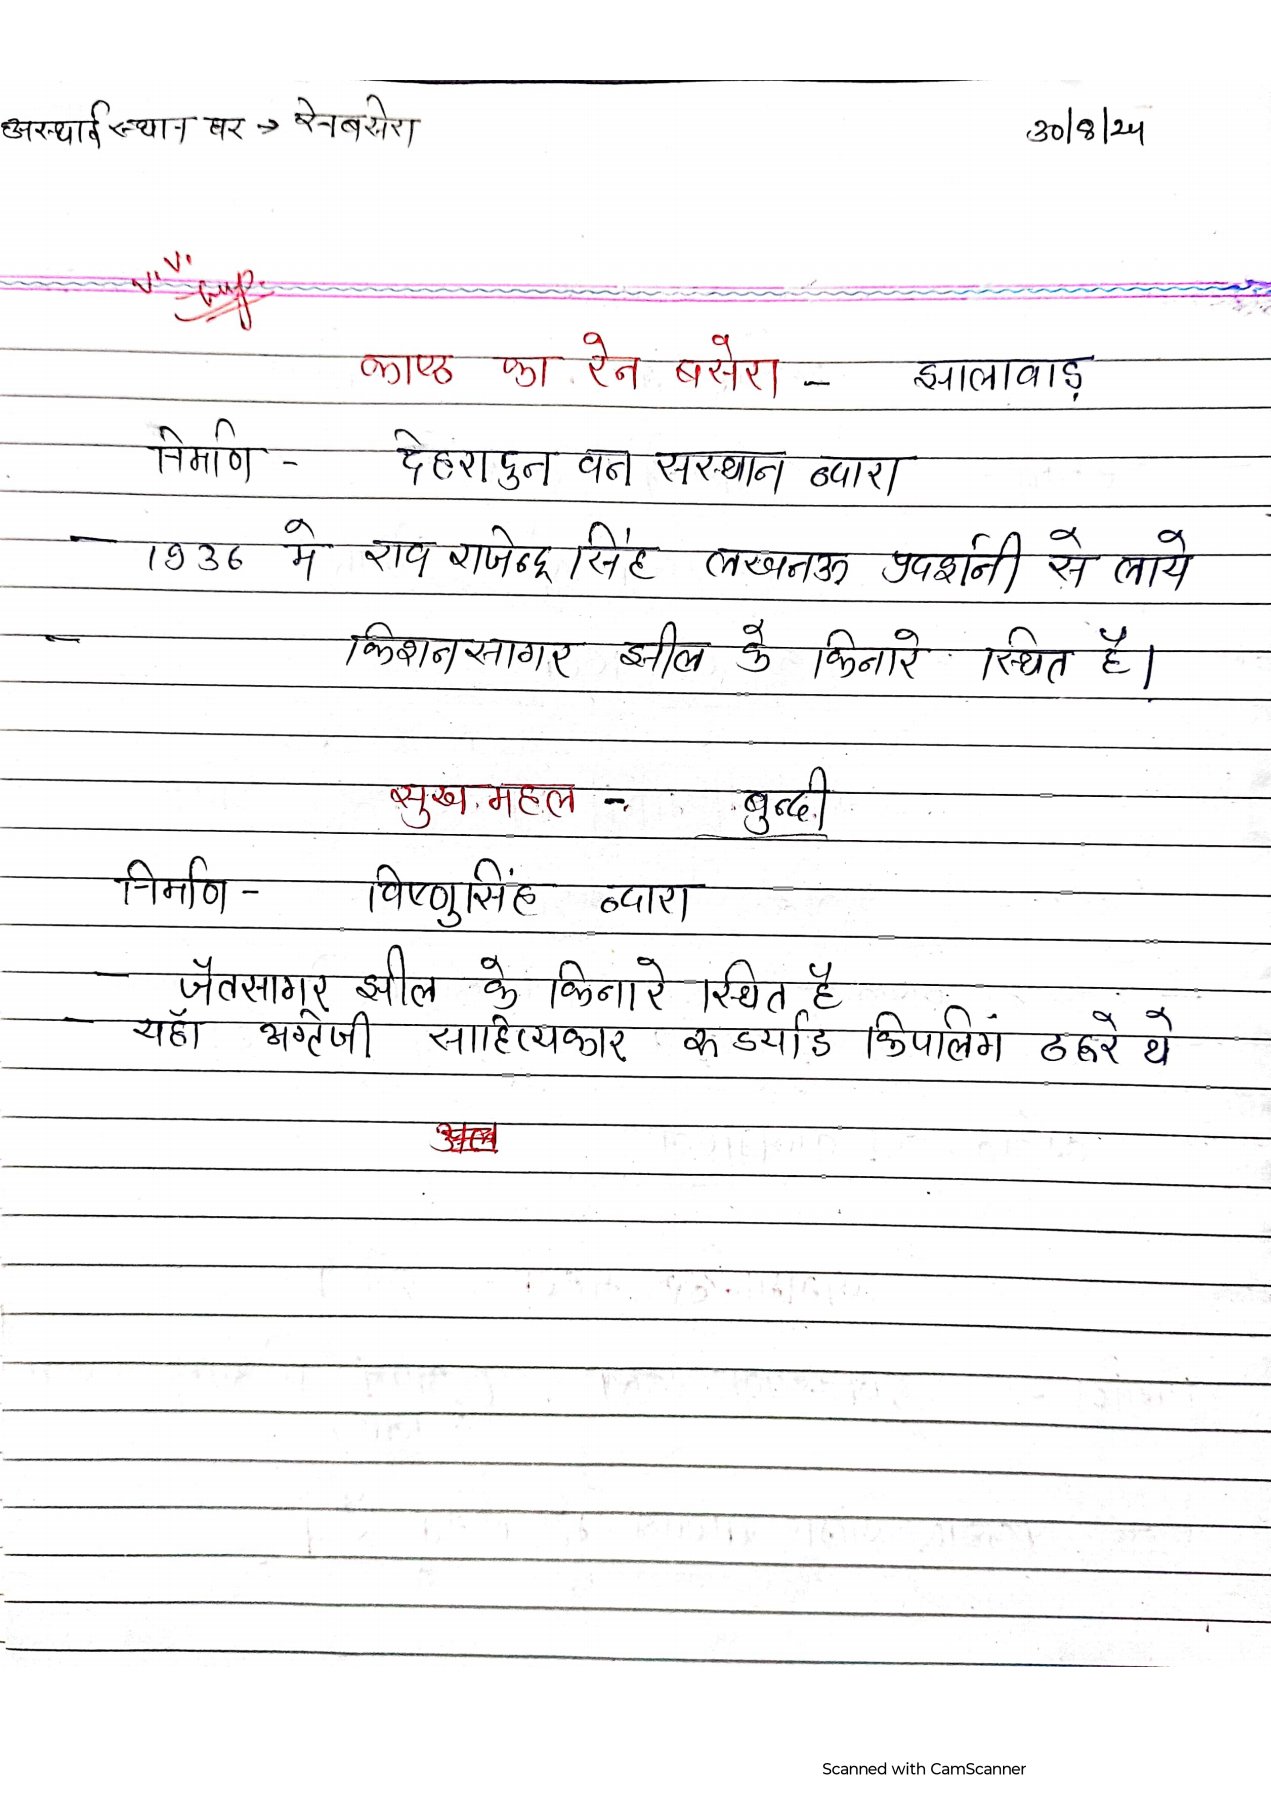 अस्थाई स्थान घर → रेनबसेरा
30/8/24
V. V. Imp.
काष्ठ का रेन बसेरा - झालावाड़
निर्माण - देहरादुन वन सस्थान व्दारा
- 1936 मे राव राजेन्द्र सिंह लखनऊ प्रदर्शनी से लाये
- किशनसागर झील के किनारे स्थित है।
सुख महल - बुन्दी
निर्माण - विष्णुसिंह व्दारा
- जैतसागर झील के किनारे स्थित है
- यहाँ अंग्रेजी साहित्यकार रूडयार्ड किपलिगं ठहरे थे
Scanned with CamScanner